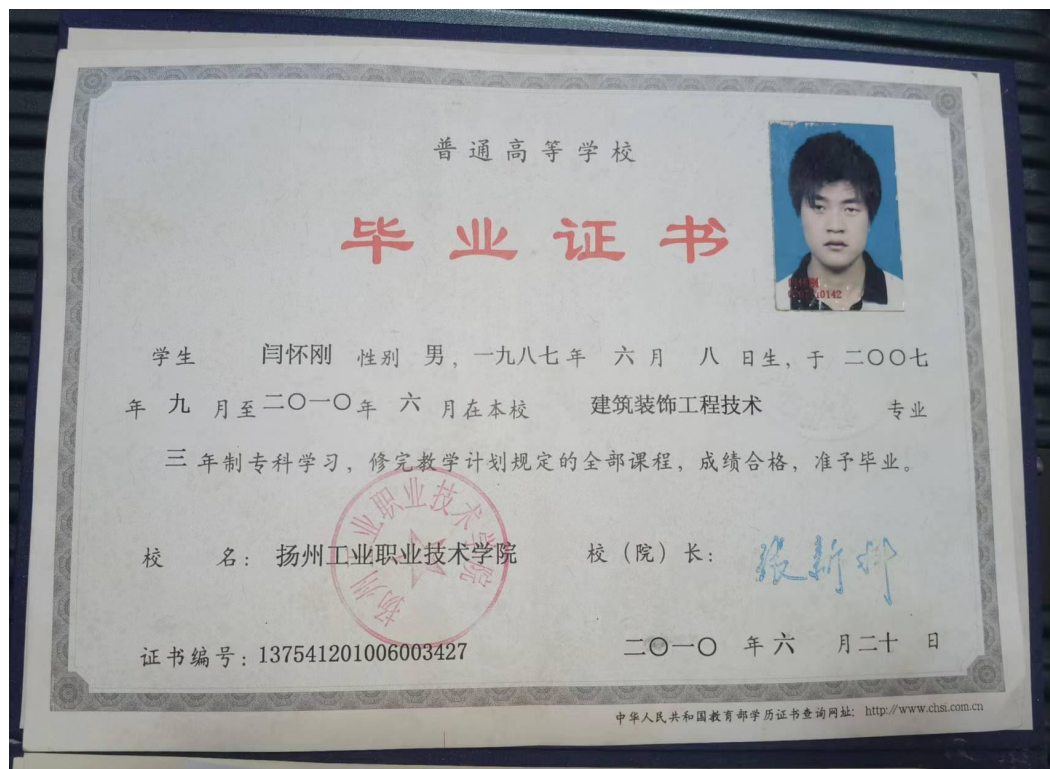 普通高等学校
毕业证书
学生 闫怀刚 性别 男，一九八七年 六月 八日生，于 二〇〇七
年 九 月至二〇一〇年 六 月在本校 建筑装饰工程技术 专业
三年制专科学习，修完教学计划规定的全部课程，成绩合格，准予毕业。
扬州工业职业技术学院
校 名：扬州工业职业技术学院 校（院）长：张新科
证书编号：137541201006003427 二〇一〇 年六 月二十 日
中华人民共和国教育部学历证书查询网址：http://www.chsi.com.cn